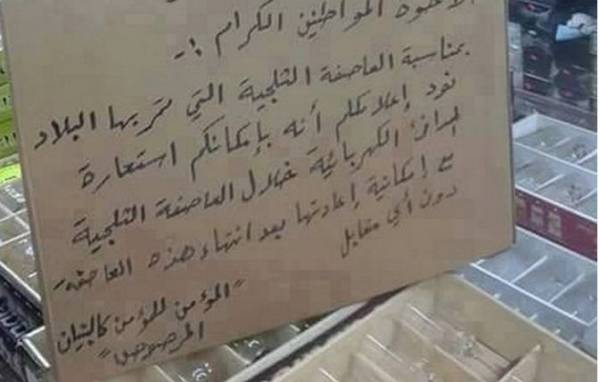 الاخوة المواطنين الكرام :-
بمناسبة العاصفة الثلجية التي تمر بها البلاد
نود إعلامكم أنه بإمكانكم استعارة
المدافئ الكهربائية خلال العاصفة الثلجية
مع إمكانية إعادتها بعد انتهاء هذه العاصفة
دون أي مقابل
"المؤمن للمؤمن كالبنيان
المرصوص"